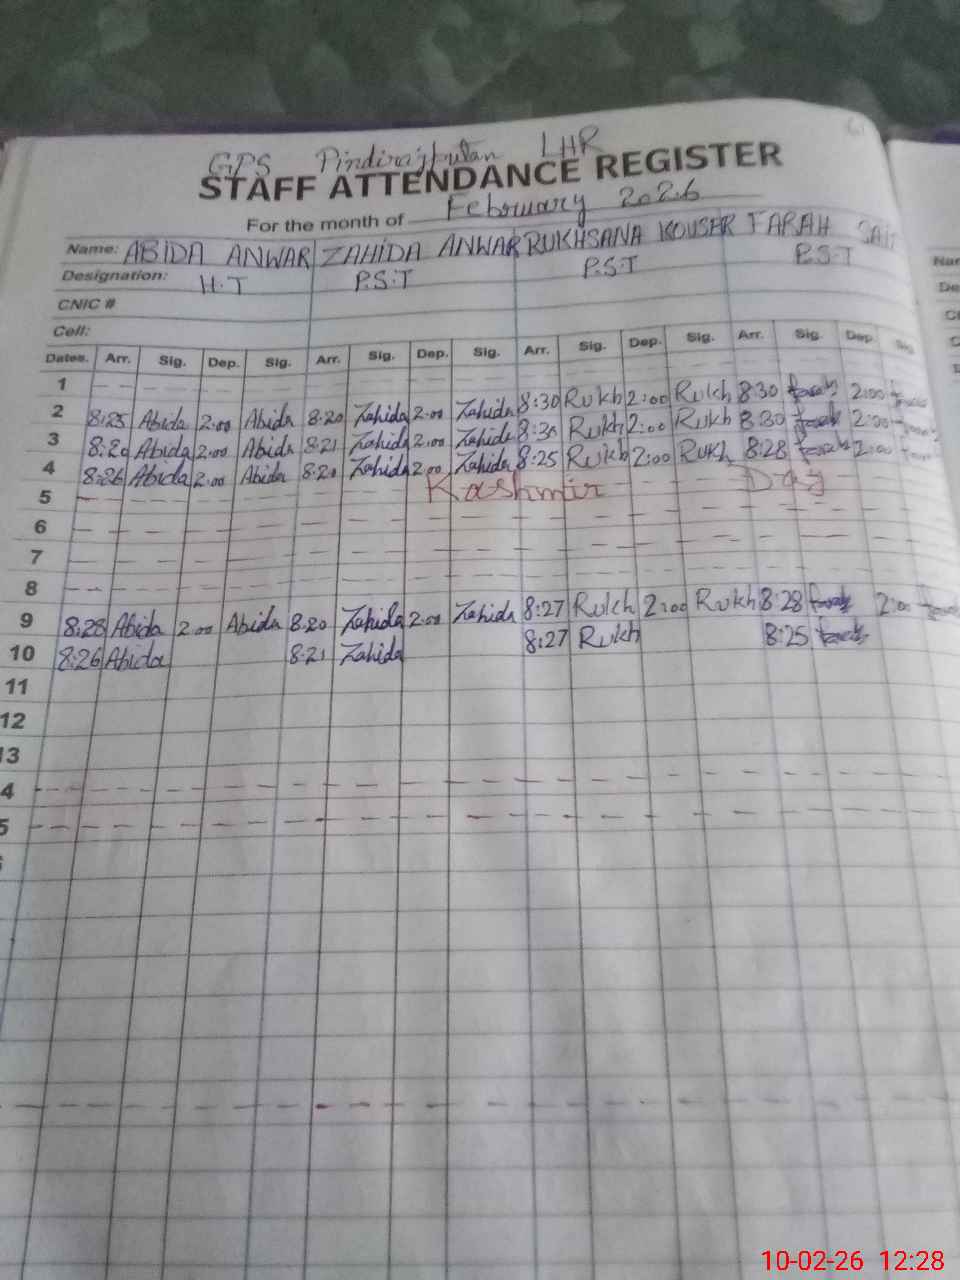 GPS Pindirajputan LHR
STAFF ATTENDANCE REGISTER
For the month of February 2026
Name: ABIDA ANWAR ZAHIDA ANWAR RUKHSANA KOUSAR FARAH
Designation: H.T P.S.T P.S.T P.S.T
CNIC #
Cell:
Dates. Arr. Sig. Dep. Sig. Arr. Sig. Dep. Sig. Arr. Sig. Dep. Sig. Arr. Sig. Dep. Sig.
1
2 8:25 Abida 2:00 Abida 8:20 Zahida 2:00 Zahida 8:30 Rukh 2:00 Rukh 8:30 farah 2:00 farah
3 8:20 Abida 2:00 Abida 8:21 Zahida 2:00 Zahida 8:30 Rukh 2:00 Rukh 8:30 farah 2:00 farah
4 8:26 Abida 2:00 Abida 8:20 Zahida 2:00 Zahida 8:25 Rukh 2:00 Rukh 8:28 farah 2:00 farah
5 Kashmir Day
6
7
8
9 8:28 Abida 2:00 Abida 8:20 Zahida 2:00 Zahida 8:27 Rukh 2:00 Rukh 8:28 farah 2:00 farah
10 8:26 Abida 8:21 Zahida 8:27 Rukh 8:25 farah
11
12
13
4
5
10-02-26 12:28